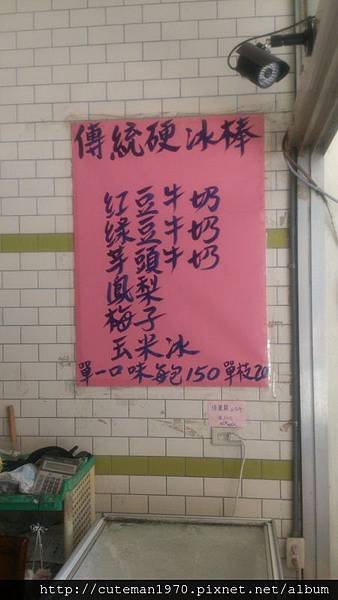 傳統硬冰棒
紅豆牛奶
綠豆牛奶
芋頭牛奶
鳳梨
梅子
玉米冰
單一口味每包150單枝20
http://cuteman1970.pixnet.net/album